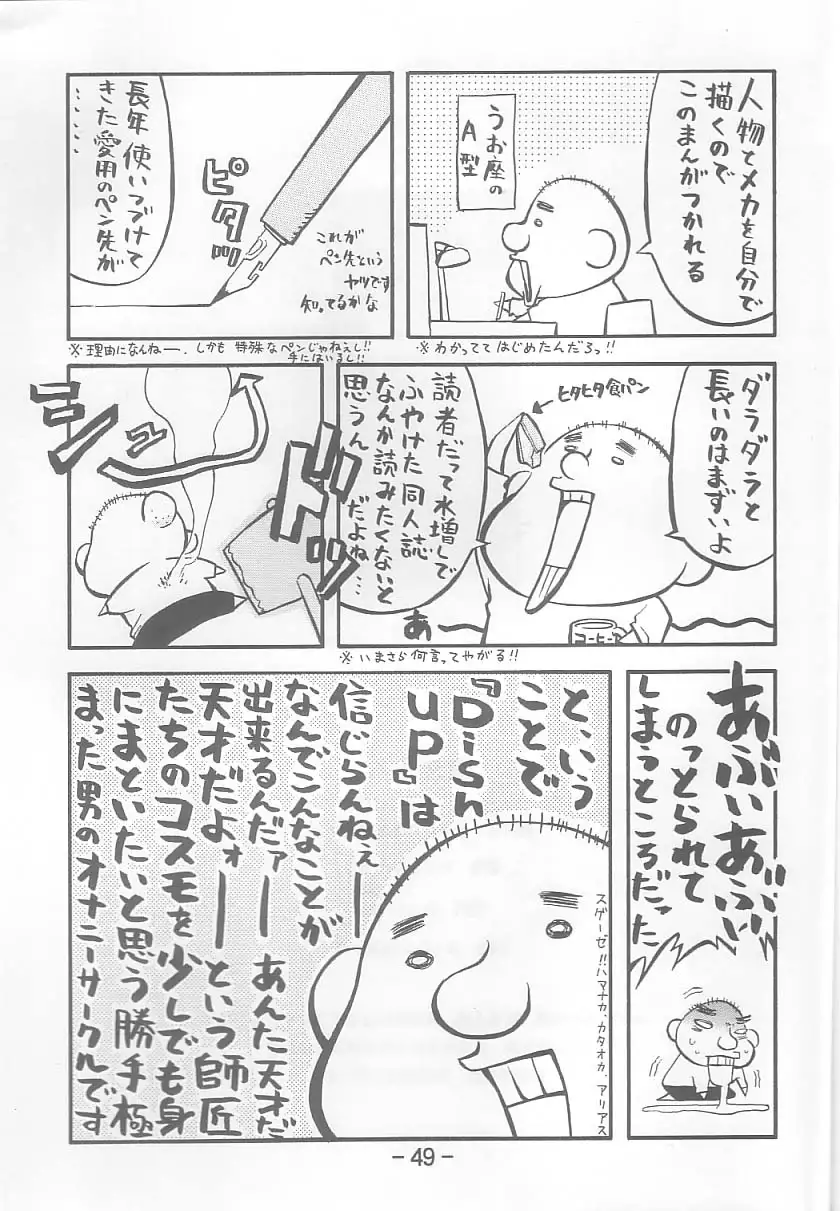 人物とメカを自分で
描くので
このまんがつかれる
うお座の
A型
※わかっててはじめたんだろっ!!
長年使いつづけて
きた愛用のペン先が
‥‥‥
ピタッ
これが
ペン先という
ヤツです
知ってるかな
※理由になんねー.しかも特殊なペンじゃねぇし!!
手にはいるし!!
ダラダラと
長いのはまずいよ
ヒタヒタ食パン
読者だって水増しで
ふやけた同人誌
なんか読みたくないと
思うん
だよね‥‥
あー
コーヒー
※いまさら何言ってやがる!!
ドドッ
あぶいあぶい
のっとられて
しまうところだった
と、いう
ことで
『Dish
up』は
信じらんねぇー
なんでこんなことが
出来るんだァー あんた天才だ
天才だよォーという師匠
たちのコスモを少しでも身
にまといたいと思う勝手極
まった男のオナニーサークルです
スゲーゼ!!ハマナカ、カタオカ、アリアス
-49-